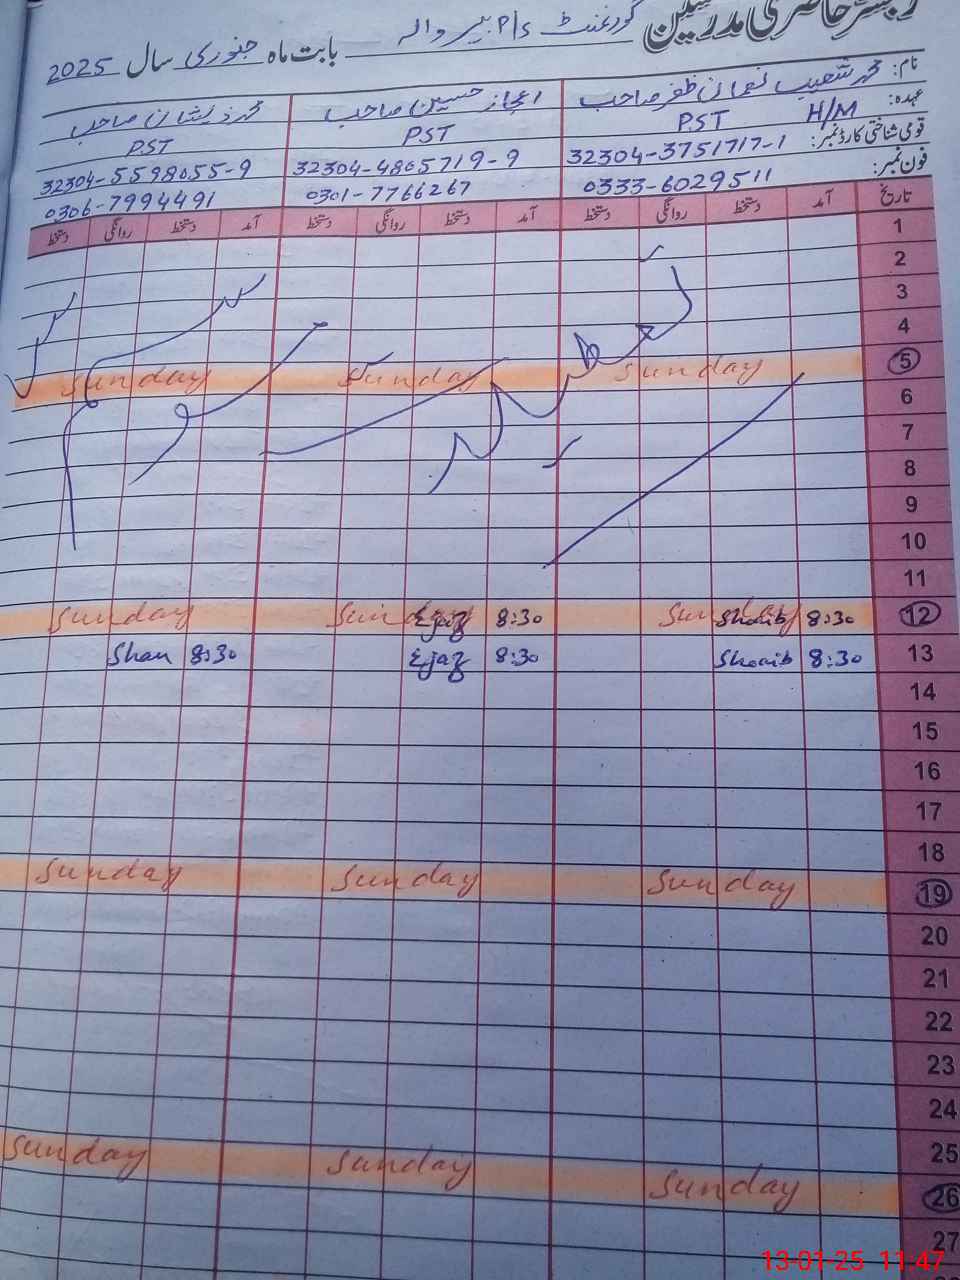 رجسٹر حاضری مدرسین گورنمنٹ P/S بابت ماہ جنوری سال 2025
نام: محمد شعیب نعمان ظفر صاحب اعجاز حسین صاحب محمد ذیشان صاحب
عہدہ: H/M PST PST PST
قومی شناختی کارڈ نمبر: 32304-3751717-1 32304-4805719-9 32304-5598055-9
فون نمبر: 0333-6029511 0301-7766267 0306-7994491
تاریخ آمد دستخط روانگی دستخط آمد دستخط روانگی دستخط آمد دستخط روانگی دستخط
1
2
3
4
Sunday Sunday Sunday 5
6
7
8
9
10
11
Sunday Sunday Ejaz 8:30 Sunday Shoaib 8:30 12
Shan 8:30 Ejaz 8:30 Shoaib 8:30 13
14
15
16
17
18
Sunday Sunday Sunday 19
20
21
22
23
24
25
Sunday Sunday Sunday 26
27
13-01-25 11:47